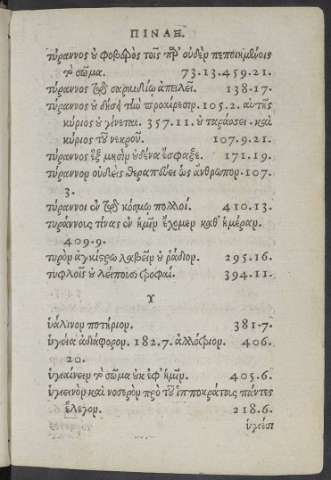 ΠΙΝΑΞ.
τύραννος οὐ φοβερὸς τοῖς παρ' οὐδὲν πεποιημένοις
τὸ σῶμα. 73.13.459.21.
τύραννος τῷ σαρκιδίῳ ἀπειλεῖ. 138.17.
τύραννος οὐ δήσει τὴν προαίρεσιν. 105.2. αὐτῆς
κύριος οὐ γίνεται. 357.11. οὐ ταράσσει. καὶ
κύριος τοῦ νεκροῦ. 107.9.21.
τύραννος ἓξ μησὶν οὐδένα ἔσφαξε. 171.19.
τύραννον οὐδεὶς θεραπεύει ὡς ἄνθρωπον. 107.
3.
τύραννοι ἐν τῷ κόσμῳ πολλοί. 410.13.
τυράννοις τίνας ἐν ἡμῖν ἔχομεν καθ' ἡμέραν.
409.9.
τυρὸν ἀγκίστρῳ λαβεῖν οὐ ῥᾴδιον. 295.16.
τυφλοῖς οἱ λέπουσι τροφαί. 394.11.
Υ
ὑάλινον ποτήριον. 381.7.
ὑγεία ἀδιάφορον. 182.7. ἀλλότριον. 406.
20.
ὑγιαίνειν τὸ σῶμα οὐκ ἐφ' ἡμῖν. 405.6.
ὑγιεινὸν καὶ νοσερὸν πρὸ τοῦ ἱπποκράτους πάντες
ἔλεγον. 218.6.
ὑγιέσι